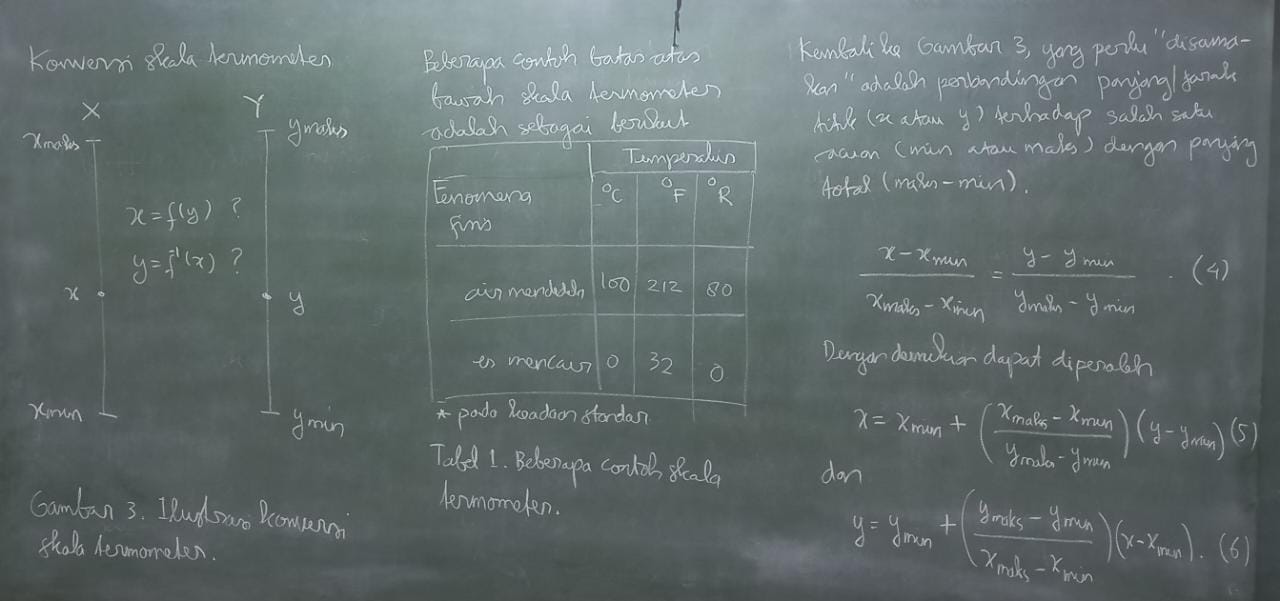 Konversi skala termometer
X Y
x_maks y_maks
x = f(y) ?
y = f⁻¹(x) ?
x y
x_min y_min
Gambar 3. Ilustrasi konversi
skala termometer.
Beberapa contoh batas atas
bawah skala termometer
adalah sebagai berikut
Temperatur
Fenomena °C °F °R
fisis
air mendidih 100 212 80
es mencair 0 32 0
* pada keadaan standar
Tabel 1. Beberapa contoh skala
termometer.
Kembali ke Gambar 3, yang perlu "disama-
kan" adalah perbandingan panjang/jarak
titik (x atau y) terhadap salah satu
acuan (min atau maks) dengan panjang
total (maks-min).
(x - x_min)/(x_maks - x_min) = (y - y_min)/(y_maks - y_min) . (4)
Dengan demikian dapat diperoleh
x = x_min + ((x_maks - x_min)/(y_maks - y_min)) (y - y_min) (5)
dan
y = y_min + ((y_maks - y_min)/(x_maks - x_min)) (x - x_min). (6)